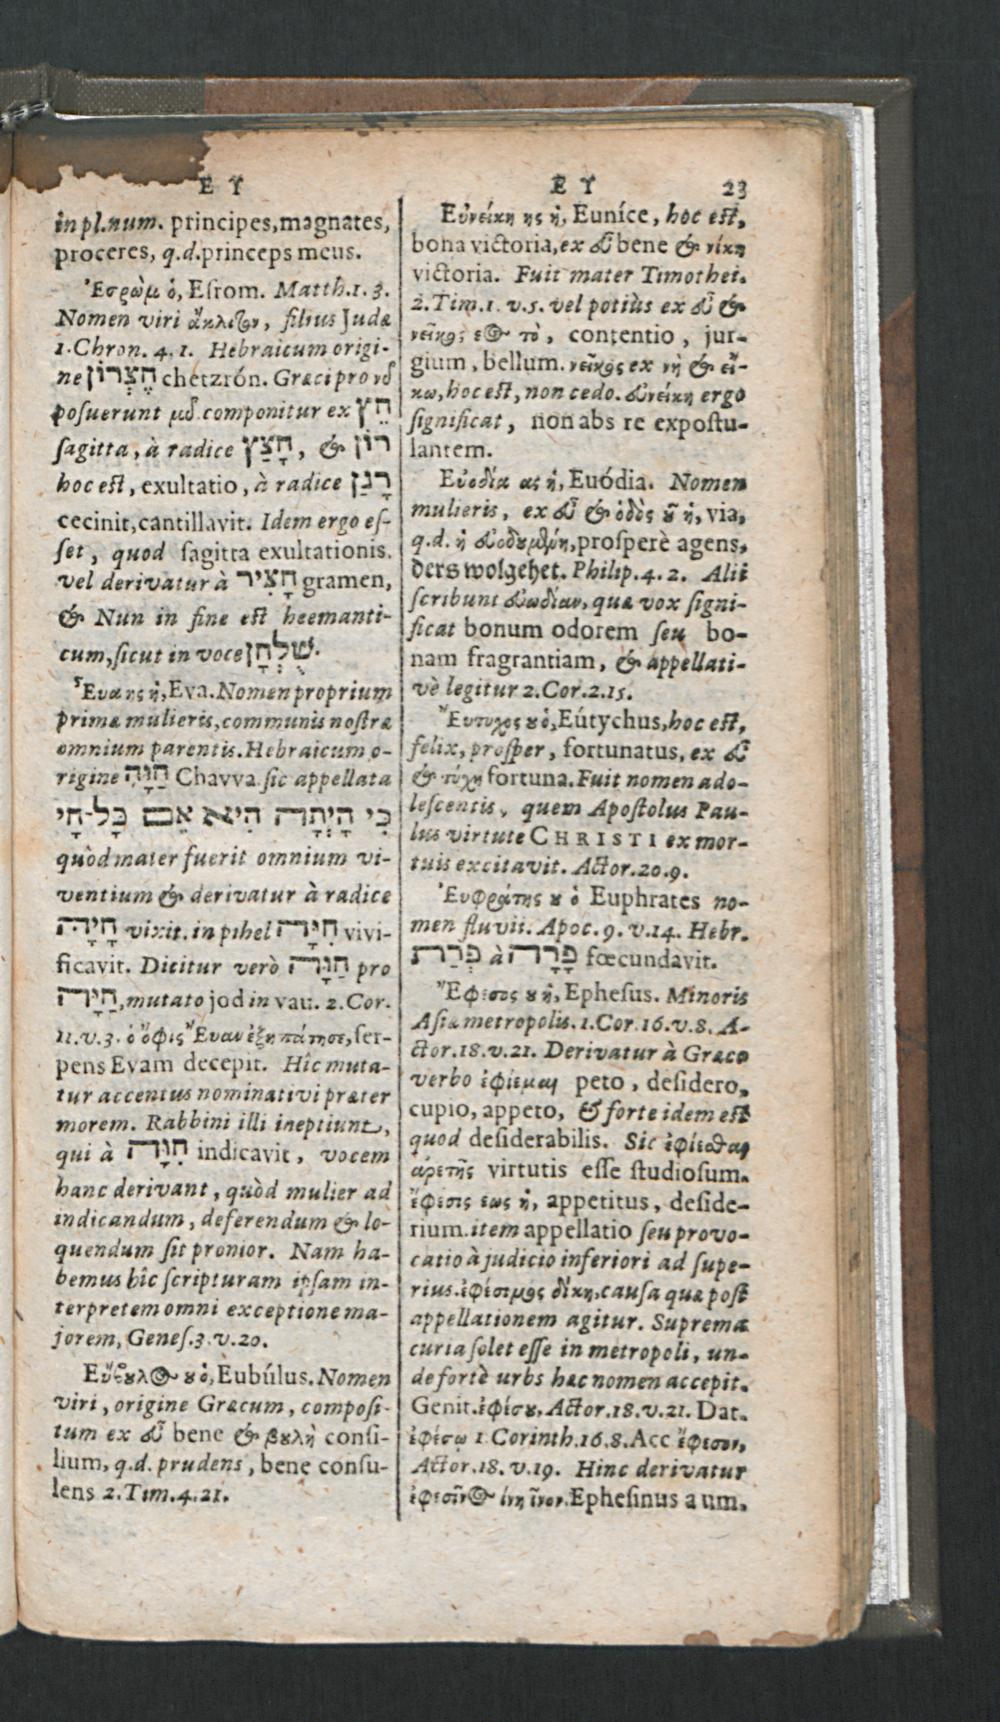 E Υ
in pl. num. principes, magnates,
proceres, q.d. princeps meus.
Ἐσρὼμ ὁ, Eſrom. Matth. 1. 3.
Nomen viri ἄκλιτον, filius Judæ
1. Chron. 4. 1. Hebraicum origi-
ne חֶצְרוֹן chetzrón. Græci pro νδ
poſuerunt μδ. componitur ex חֵץ
ſagitta, à radice חָצַץ, & רוֹן
hoc eſt, exultatio, à radice רָנַן
cecinit, cantillavit. Idem ergo eſ-
ſet, quod ſagitta exultationis.
vel derivatur à חָצִיר gramen,
& Nun in fine eſt heemanti-
cum, ſicut in voce שֻׁלְחָן.
Ἕυα ης ἡ, Eva. Nomen proprium
primæ mulieris, communis noſtræ
omnium parentis. Hebraicum o-
rigine חַוָּה Chavva ſic appellata
כִּי הָיְתָה הִיא אֵם כָּל־חָי
quòd mater fuerit omnium vi-
ventium & derivatur à radice
חָיָה vixit. in pihel חִיָּה vivi-
ficavit. Dicitur verò חַוָּה pro
חַיָּה, mutato jod in vau. 2. Cor.
11. v. 3. ὁ ὄφις Ἔυαν ἐξηπάτησε, ſer-
pens Evam decepit. Hîc muta-
tur accentus nominativi præter
morem. Rabbini illi ineptiunt,
qui à חִוָּה indicavit, vocem
hanc derivant, quòd mulier ad
indicandum, deferendum & lo-
quendum ſit pronior. Nam ha-
bemus hîc ſcripturam ipſam in-
terpretem omni exceptione ma-
jorem, Geneſ. 3. v. 20.
Εὔβουλος ου ὁ, Eubúlus. Nomen
viri, origine Græcum, compoſi-
tum ex εὖ bene & βουλὴ conſi-
lium, q.d. prudens, bene conſu-
lens 2. Tim. 4. 21.
E Υ 23
Εὐνείκη ης ἡ, Euníce, hoc eſt,
bona victoria, ex εὖ bene & νίκη
victoria. Fuit mater Timothei.
2. Tim. 1. v. 5. vel potiùs ex εὖ &
νεῖκος εος τὸ, contentio, jur-
gium, bellum. νεῖκος ex νὴ & εἴ-
κω, hoc eſt, non cedo. εὐνείκη ergo
ſignificat, non abs re expoſtu-
lantem.
Εὐοδία ας ἡ, Euódia. Nomen
mulieris, ex εὖ & ὁδὸς οῦ ἡ, via,
q.d. ἡ εὐοδουμένη, proſperè agens,
ders wolgehet. Philip. 4. 2. Alii
ſcribunt εὐωδίαν, quæ vox ſigni-
ficat bonum odorem ſeu bo-
nam fragrantiam, & appellati-
vè legitur 2. Cor. 2. 15.
Ἔυτυχος ου ὁ, Eútychus, hoc eſt,
felix, proſper, fortunatus, ex εὖ
& τύχη fortuna. Fuit nomen ado-
leſcentis, quem Apoſtolus Pau-
lus virtute CHRISTI ex mor-
tuis excitavit. Actor. 20. 9.
Ἐυφράτης ου ὁ Euphrates no-
men fluvii. Apoc. 9. v. 14. Hebr.
פְּרַת à פָּרָה fœcundavit.
Ἔφεσος ου ἡ, Epheſus. Minoris
Aſiæ metropolis. 1. Cor. 16. v. 8. A-
ctor. 18. v. 21. Derivatur à Græco
verbo ἐφίεμαι peto, deſidero,
cupio, appeto, & forte idem eſt
quod deſiderabilis. Sic ἐφίεσθαι
ἀρετῆς virtutis eſſe ſtudioſum.
ἔφεσις εως ἡ, appetitus, deſide-
rium. item appellatio ſeu provo-
catio à judicio inferiori ad ſupe-
rius. ἐφέσιμος δίκη, cauſa quæ poſt
appellationem agitur. Suprema
curia ſolet eſſe in metropoli, un-
de fortè urbs hæc nomen accepit.
Genit. ἐφέσου, Actor. 18. v. 21. Dat.
ἐφέσῳ 1. Corinth. 16. 8. Acc ἔφεσον,
Actor. 18. v. 19. Hinc derivatur
ἐφεσῖνος ίνη ῖνον. Epheſinus a um.